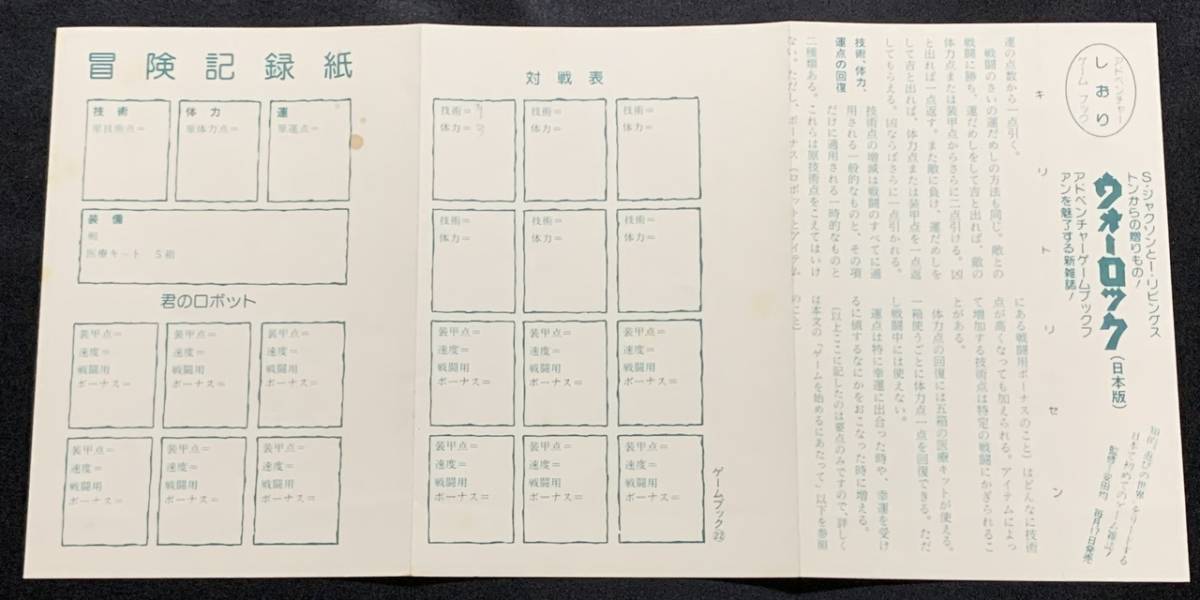 冒険記録紙
技術
原技術点＝
体力
原体力点＝
運
原運点＝
装備
剣
医療キット 5箱
君のロボット
装甲点＝
速度＝
戦闘用
ボーナス＝
装甲点＝
速度＝
戦闘用
ボーナス＝
装甲点＝
速度＝
戦闘用
ボーナス＝
装甲点＝
速度＝
戦闘用
ボーナス＝
装甲点＝
速度＝
戦闘用
ボーナス＝
装甲点＝
速度＝
戦闘用
ボーナス＝
対戦表
技術＝
体力＝
技術＝
体力＝
技術＝
体力＝
技術＝
体力＝
技術＝
体力＝
技術＝
体力＝
装甲点＝
速度＝
戦闘用
ボーナス＝
装甲点＝
速度＝
戦闘用
ボーナス＝
装甲点＝
速度＝
戦闘用
ボーナス＝
装甲点＝
速度＝
戦闘用
ボーナス＝
装甲点＝
速度＝
戦闘用
ボーナス＝
装甲点＝
速度＝
戦闘用
ボーナス＝
ゲームブック㉒
運の点数から一点引く。
戦闘のさいの運だめしの方法も同じ。敵との
戦闘に勝ち、運だめしをして吉と出れば、敵の
体力点または装甲点からさらに二点引ける。凶
と出れば一点返す。また敵に負け、運だめしを
して吉と出れば、体力点または装甲点を一点返
してもらえる。凶ならばさらに一点引かれる。
技術、体力、
運点の回復
技術点の増減は戦闘のすべてに適
用される一般的なものと、その項
だけに適用される一時的なものと
二種類ある。これらは原技術点をこえてはいけ
ない。ただし、ボーナス（ロボットとアイテム
にある戦闘用ボーナスのこと）はどんなに技術
点が高くなっても加えられる。アイテムによっ
て増加する技術点は特定の戦闘にかぎられるこ
とがある。
体力点の回復には五箱の医療キットが使える。
一箱使うごとに体力点一点を回復できる。ただ
し戦闘中には使えない。
運点は特に幸運に出合った時や、幸運を受け
るに値するなにかをおこなった時に増える。
（以上ここに記したのは要点のみですので、詳しく
は本文の「ゲームを始めるにあたって」以下を参照
のこと）
キリトリセン
アドベンチャー
ゲームブック
しおり
S・ジャクソンとI・リビングス
トンからの贈りもの！
ウォーロック（日本版）
アドベンチャーゲームブックフ
アンを魅了する新雑誌！
知的遊びの世界をリードする
日本で初めてのゲーム雑誌！
監修／安田均 毎月17日発売